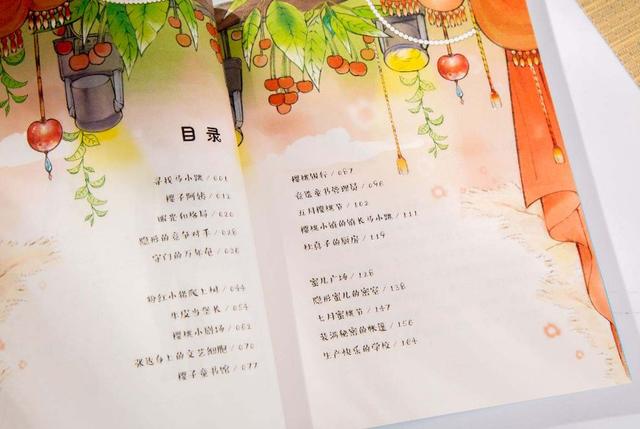 目录
寻找马小跳 / 001
樱子阿转 / 012
眼光和格局 / 020
隐形的竞争对手 / 028
守门的万年龟 / 036
粉红小猪爬上树 / 044
生度当堂长 / 054
樱桃小剧场 / 062
张达身上的文艺细胞 / 070
樱子童书馆 / 077
樱桃银行 / 087
竞选童书管理局 / 096
五月樱桃节 / 102
樱桃小镇的镇长马小跳 / 111
杜真子的厨房 / 119
蜜儿广场 / 128
隐形蜜儿的密室 / 138
七月蜜桃节 / 147
装满秘密的帐篷 / 156
生产快乐的学校 / 164